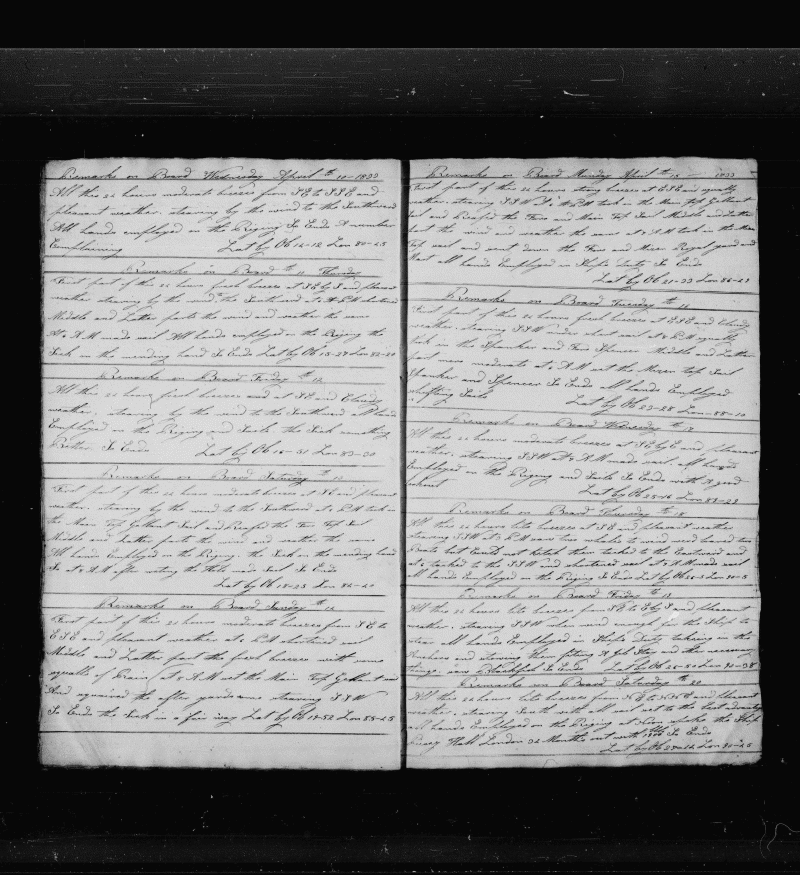 Remarks on Board Wednesday April th 10 - 1833
All this 24 hours moderate breezes from S E to S S E and
pleasant weather. stearing by the wind to the Southward
All hands employed on the Riging So Ends A number
Complaining Lat by Ob 14-12 Lon 80-45
Remarks on Board th 11 Thursday
First part of this 24 hours fresh breezes at S E by S and pleasant
weather stearing by the wind to the Southward at 4 P M shortened
Middle and Latter parts the wind and weather the same
At 6 A M made sail All hands employed on the Riging the
Sick on the mending hand So Ends Lat by Ob 15-27 Lon 82-20
Remarks on Board Friday th 12
All this 24 hours fresh breezes and at S E and Cloudy
weather. stearing by the wind to the Southward all hands
Employed on the Riging and Sails the Sick something
Better So Ends Lat by Ob 16-51 Lon 83-30
Remarks on Board Saturday th 13
First part of this 24 hours moderate breezes at S E and pleasant
weather. stearing by the wind to the Southward at P M took in
the Main Top Gallant Sail and Reafed the Fore Top Sail
Middle and Latter parts the wind and weather the same
All hands Employed on the Riging. the Sick on the mending hand
So at 6 A M after wating the Hole made Sail So Ends
Lat by Ob 18-23 Lon 84-40
Remarks on Board Sunday th 14
First part of this 24 hours moderate breezes from S E to
E S E and pleasant weather at 6 P M shortened sail
Middle and Latter part the fresh breezes with some
squalls of Rain, at 6 A M set the Main Top Gallant sail
And squaired the after yards some stearing S S W
So Ends the Sick in a fair way Lat by Ob 19-52 Lon 85-45
Remarks on Board Monday April th 15 1833
First part of this 24 hours strong breezes at E S E and squally
weather. stearing S S W at 4 P M took in the Main Top Gallant
Sail and Reafed the Fore and Main Top Sail Middle and Latter
part the wind and weather the same at 6 A M took in the Main
Top sail and sent down the Fore and Mizen Royal yard and
Mast all hands Employed in Ships Duty So Ends
Lat by Ob 21-33 Lon 86-43
Remarks on Board Tuesday th 16
First part of this 24 hours fresh breezes at E S E and Cloudy
weather. stearing S S W under short sail at 4 P M squally
took in the Spanker and Fore Spencer Middle and Latter
part more moderate at 6 A M set the Mizen Top Sail
Spanker and Spencer So Ends all hands Employed
shifting Sails Lat by Ob 23-28 Lon 88-10
Remarks on Board Wednesday th 17
All this 24 hours moderate breezes at S E by E and pleasant
weather. stearing S S W at 6 A M made sail. all hands
Employed on the Riging and Sails So Ends with A good
lookout Lat by Ob 25-16 Lon 89-23
Remarks on Board Thursday th 18
All this 24 hours lite breezes at S E and pleasant weather
stearing S S W at 3 P M saw two whales to wind ward lowered two
Boats but Could not take them tacked to the Eastward and
at 6 tacked to the S S W and shortened sail at 6 A M made sail
all hands Employed on the Riging So Ends Lat by Ob 26-5 Lon 90-5
Remarks on Board Friday th 19
All this 24 hours lite breezes from S E to E by S and pleasant
weather. stearing S S W when wind enough for the Ship to
stear all hands Employed in Ships Duty takeing in the
Anchors and stowing them fiting A Jib Stay and other necessary
things. saw A Blackfish So Ends Lat by Ob 26-50 Lon 90-38
Remarks on Board Saturday th 20
All this 24 hours lite breezes from N E to N N E and pleasant
weather. stearing South with all sail set to the best advantage
all hands Employed on the Riging at Noon spoke the Ship
Hall London 34 Months out with So Ends
Lat by Ob 27-14 Lon 90-45